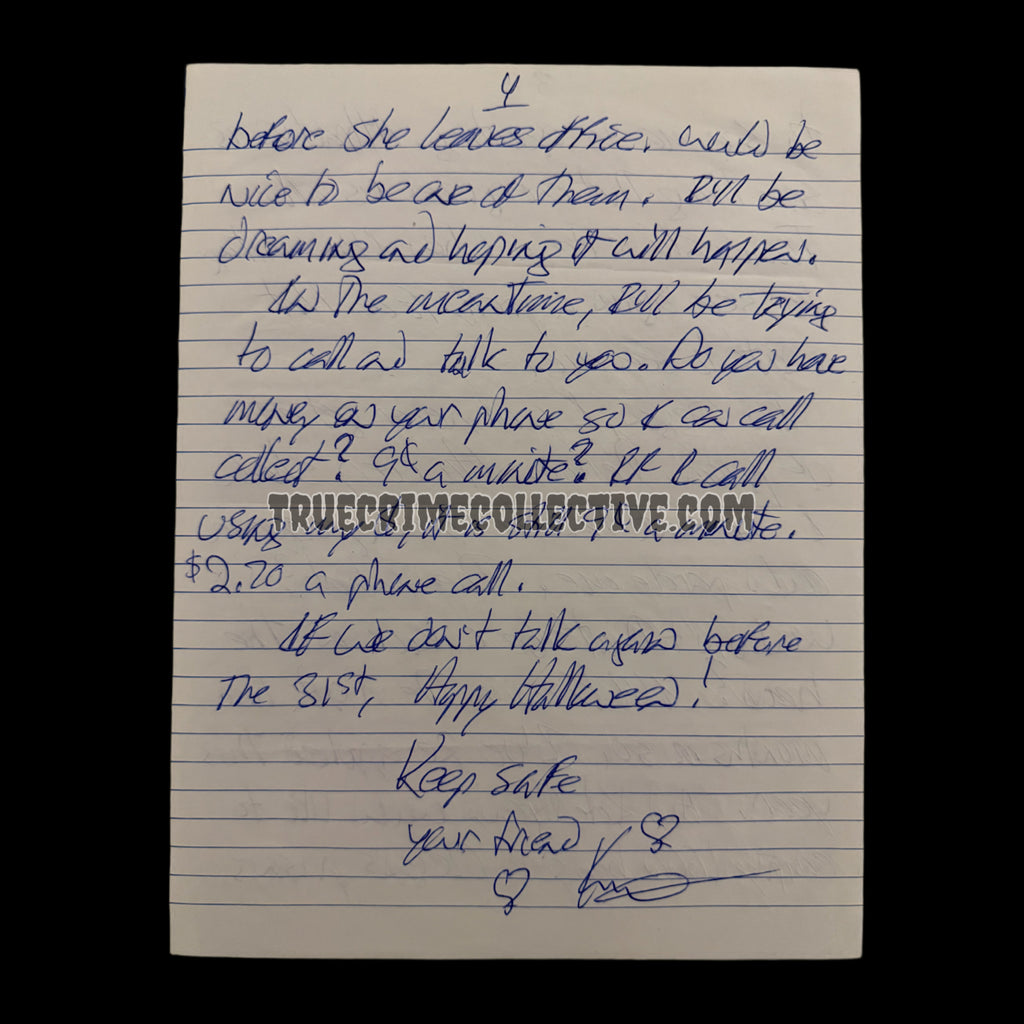 4
before she leaves office. would be
nice to be one of them. I'll be
dreaming and hoping it will happen.
In the meantime, I'll be trying
to call and talk to you. Do you have
money on your phone so I can call
collect? 9¢ a minute? If I call
TRUECRIMECOLLECTIVE.COM
using my $, it is still 9¢ a minute.
$2.70 a phone call.
If we don't talk again before
the 31st, Happy Halloween!
Keep safe
your friend